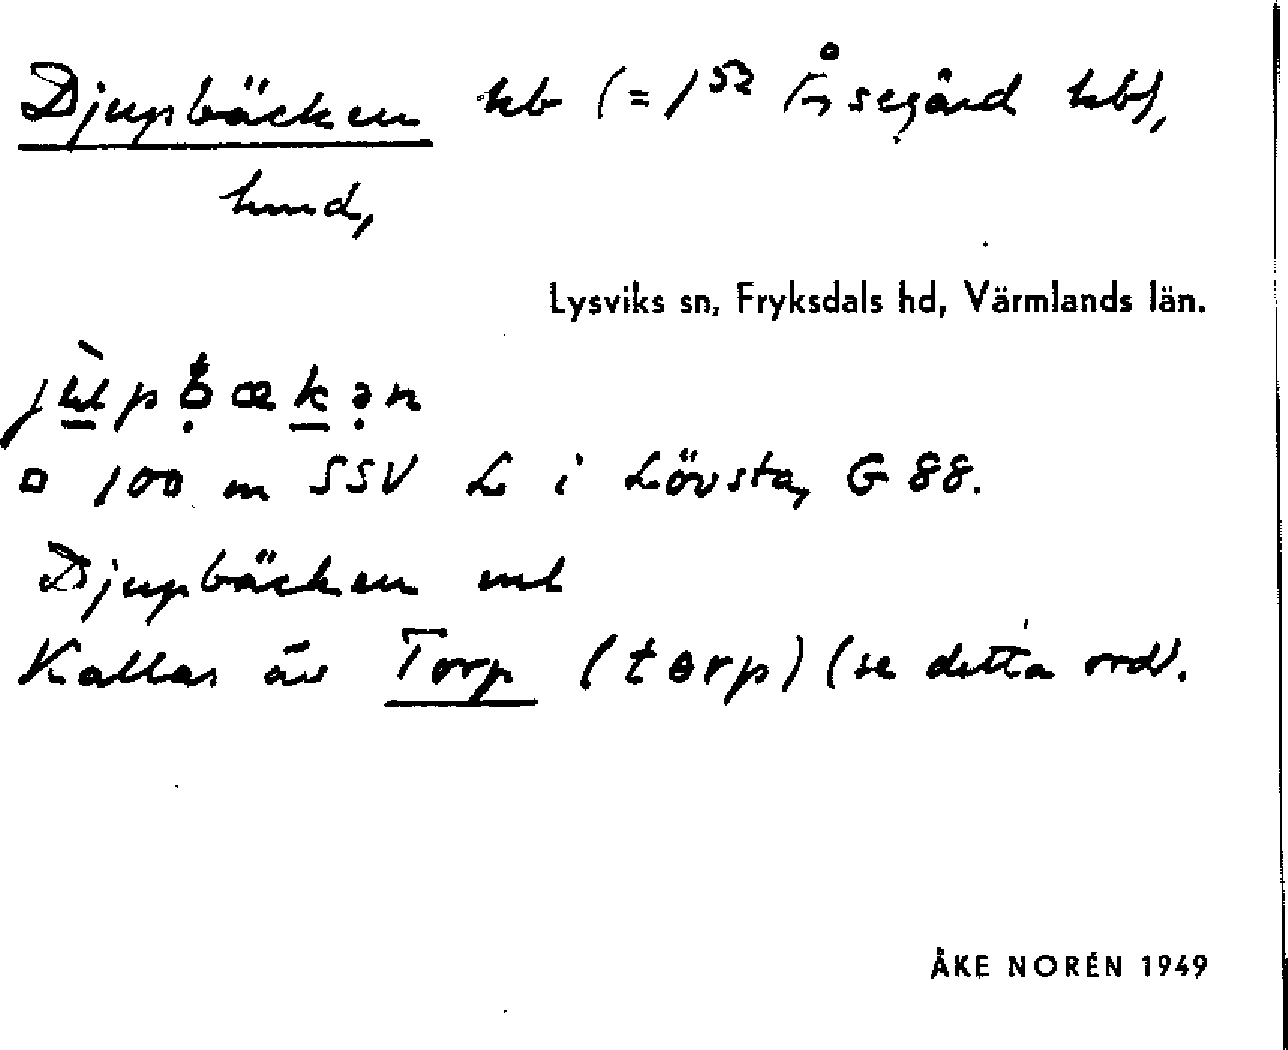 Djupbäcken kb (= 1⁵² Åsegård kb),
hmd,
Lysviks sn, Fryksdals hd, Värmlands län.
jùpbækən
□ 100 m SSV L i Lövsta, G 88.
Djupbäcken ml
Kallas äv Torp (torp) (se detta ord).
ÅKE NORÉN 1949